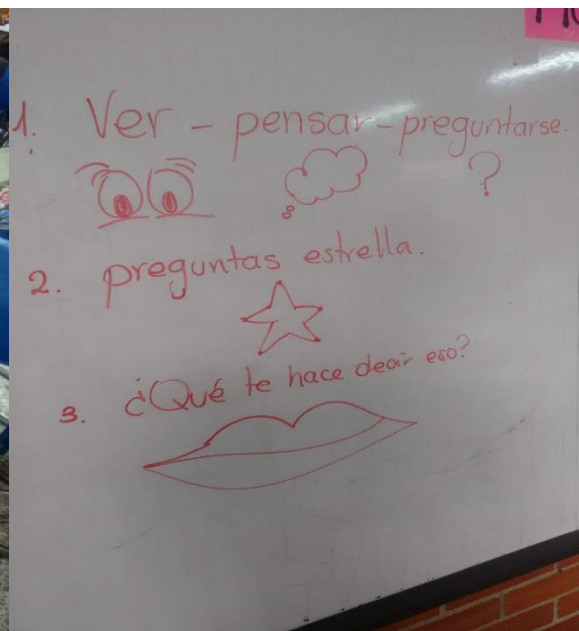 1. Ver - pensar - preguntarse.
?
2. preguntas estrella.
3. ¿Qué te hace decir eso?